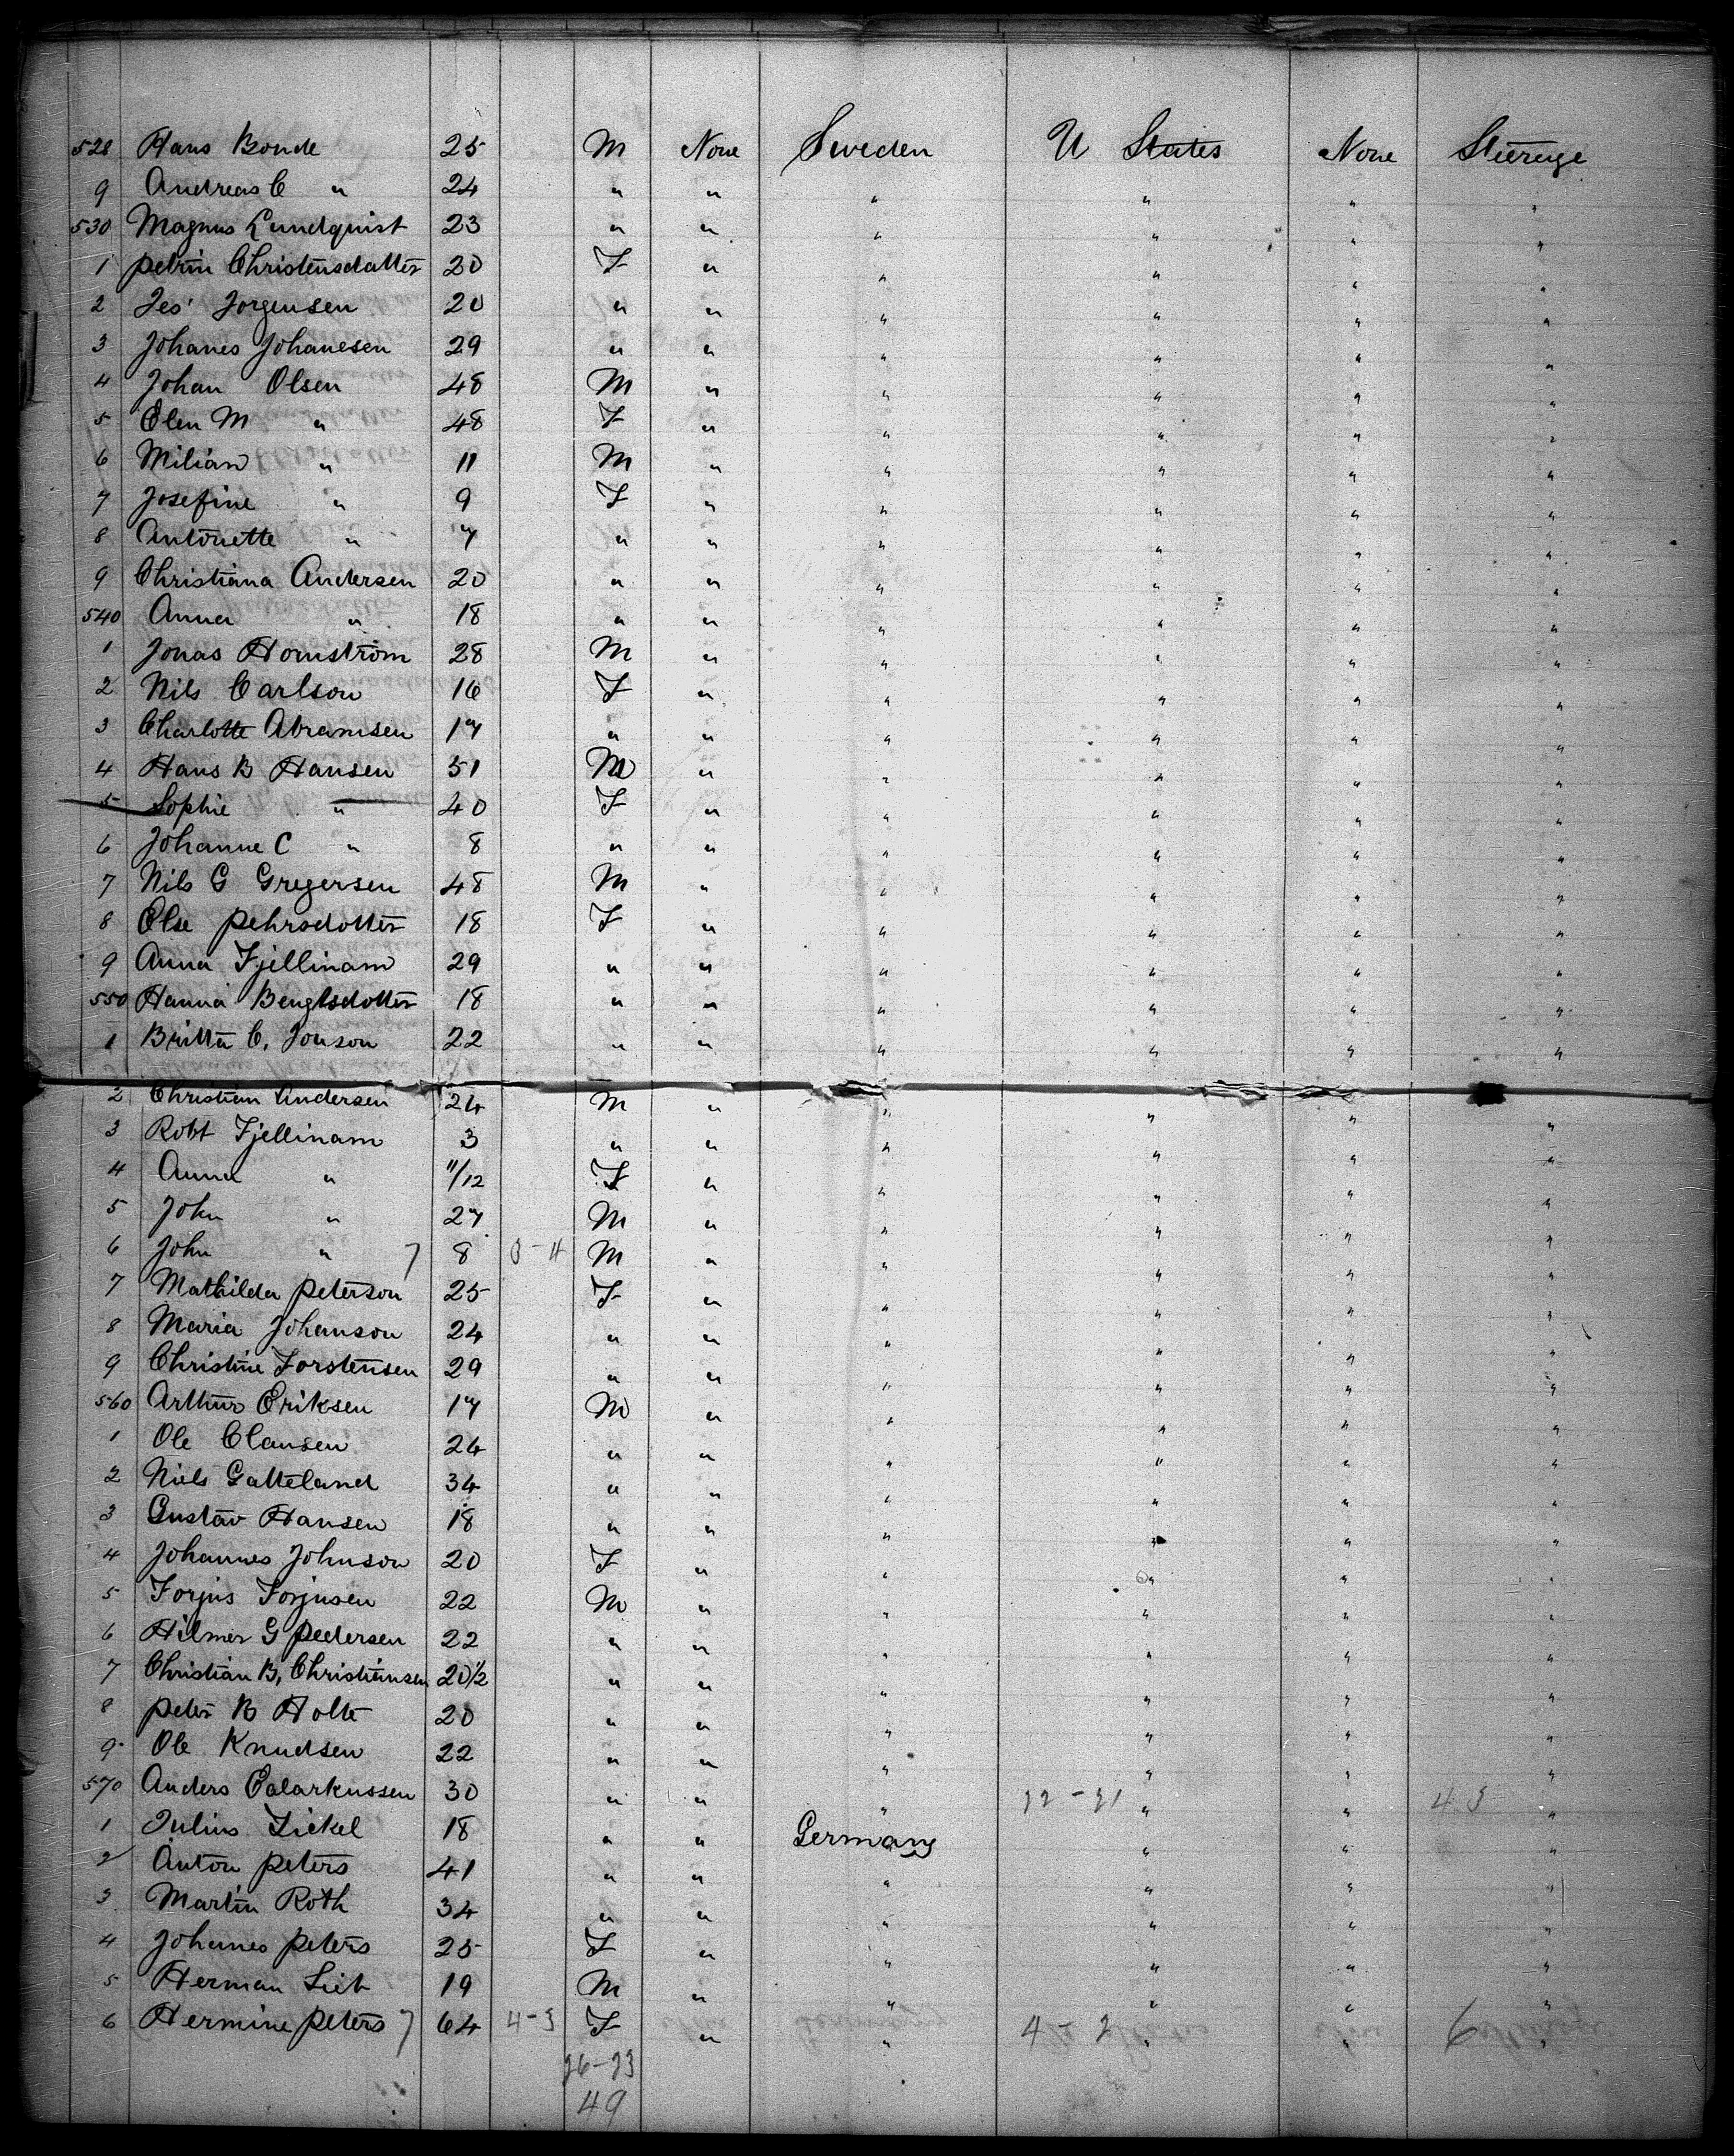 528 Hans Bonde 25 M None Sweden U States None Steerage
9 Andreas C " 24 " " " " " "
530 Magnus Lundquist 23 " " " " " "
1 petrin Christensdatter 20 F " " " " "
2 Jes Jorgensen 20 " " " " " "
3 Johanes Johanesen 29 " " " " " "
4 Johan Olsen 48 M " " " " "
5 Elen M " 48 F " " " " "
6 Milian " 11 M " " " " "
7 Josefine " 9 F " " " " "
8 Antonette " 7 " " " " " "
9 Christiana Andersen 20 " " " " " "
540 Anna " 18 " " " " " "
1 Jonas Homström 28 M " " " " "
2 Nils Carlson 16 F " " " " "
3 Charlotte Abramsen 17 " " " " " "
4 Hans B Hansen 51 M " " " " "
5 Sophie " 40 F " " " " "
6 Johanne C " 8 " " " " " "
7 Nils G Gregersen 48 M " " " " "
8 Else pehrsdotter 18 F " " " " "
9 Anna Fjellinam 29 " " " " " "
550 Hanna Bengtsdotter 18 " " " " " "
1 Britta C. Jonson 22 " " " " " "
2 Christian Andersen 24 M " " " " "
3 Robt Fjellinam 3 " " " " " "
4 Anna " 11/12 F " " " " "
5 John " 27 M " " " " "
6 John " 7 8 3-4 M " " " " "
7 Mathilda peterson 25 F " " " " "
8 Maria Johanson 24 " " " " " "
9 Christine Torstensen 29 " " " " " "
560 Arthur Eriksen 17 M " " " " "
1 Ole Clausen 24 " " " " " "
2 Niels Gatteland 34 " " " " " "
3 Gustav Hansen 18 " " " " " "
4 Johannes Johnson 20 F " " " " "
5 Torjus Torjusen 22 M " " " " "
6 Hilmer G pedersen 22 " " " " " "
7 Christian B. Christiansen 20 1/2 " " " " " "
8 peter B Holte 20 " " " " " "
9 Ole Knudsen 22 " " " " " "
570 Anders 30 " " " " " "
1 Julius Zickel 18 " " Germany " " "
2 Anton peters 41 " " " " " "
3 Martin Roth 34 " " " " " "
4 Johanes peters 25 F " " " " "
5 Herman Lieb 19 M " " " " "
6 Hermine peters 7 64 4-3 F " " 4-2 " " 6 "
26-23
49